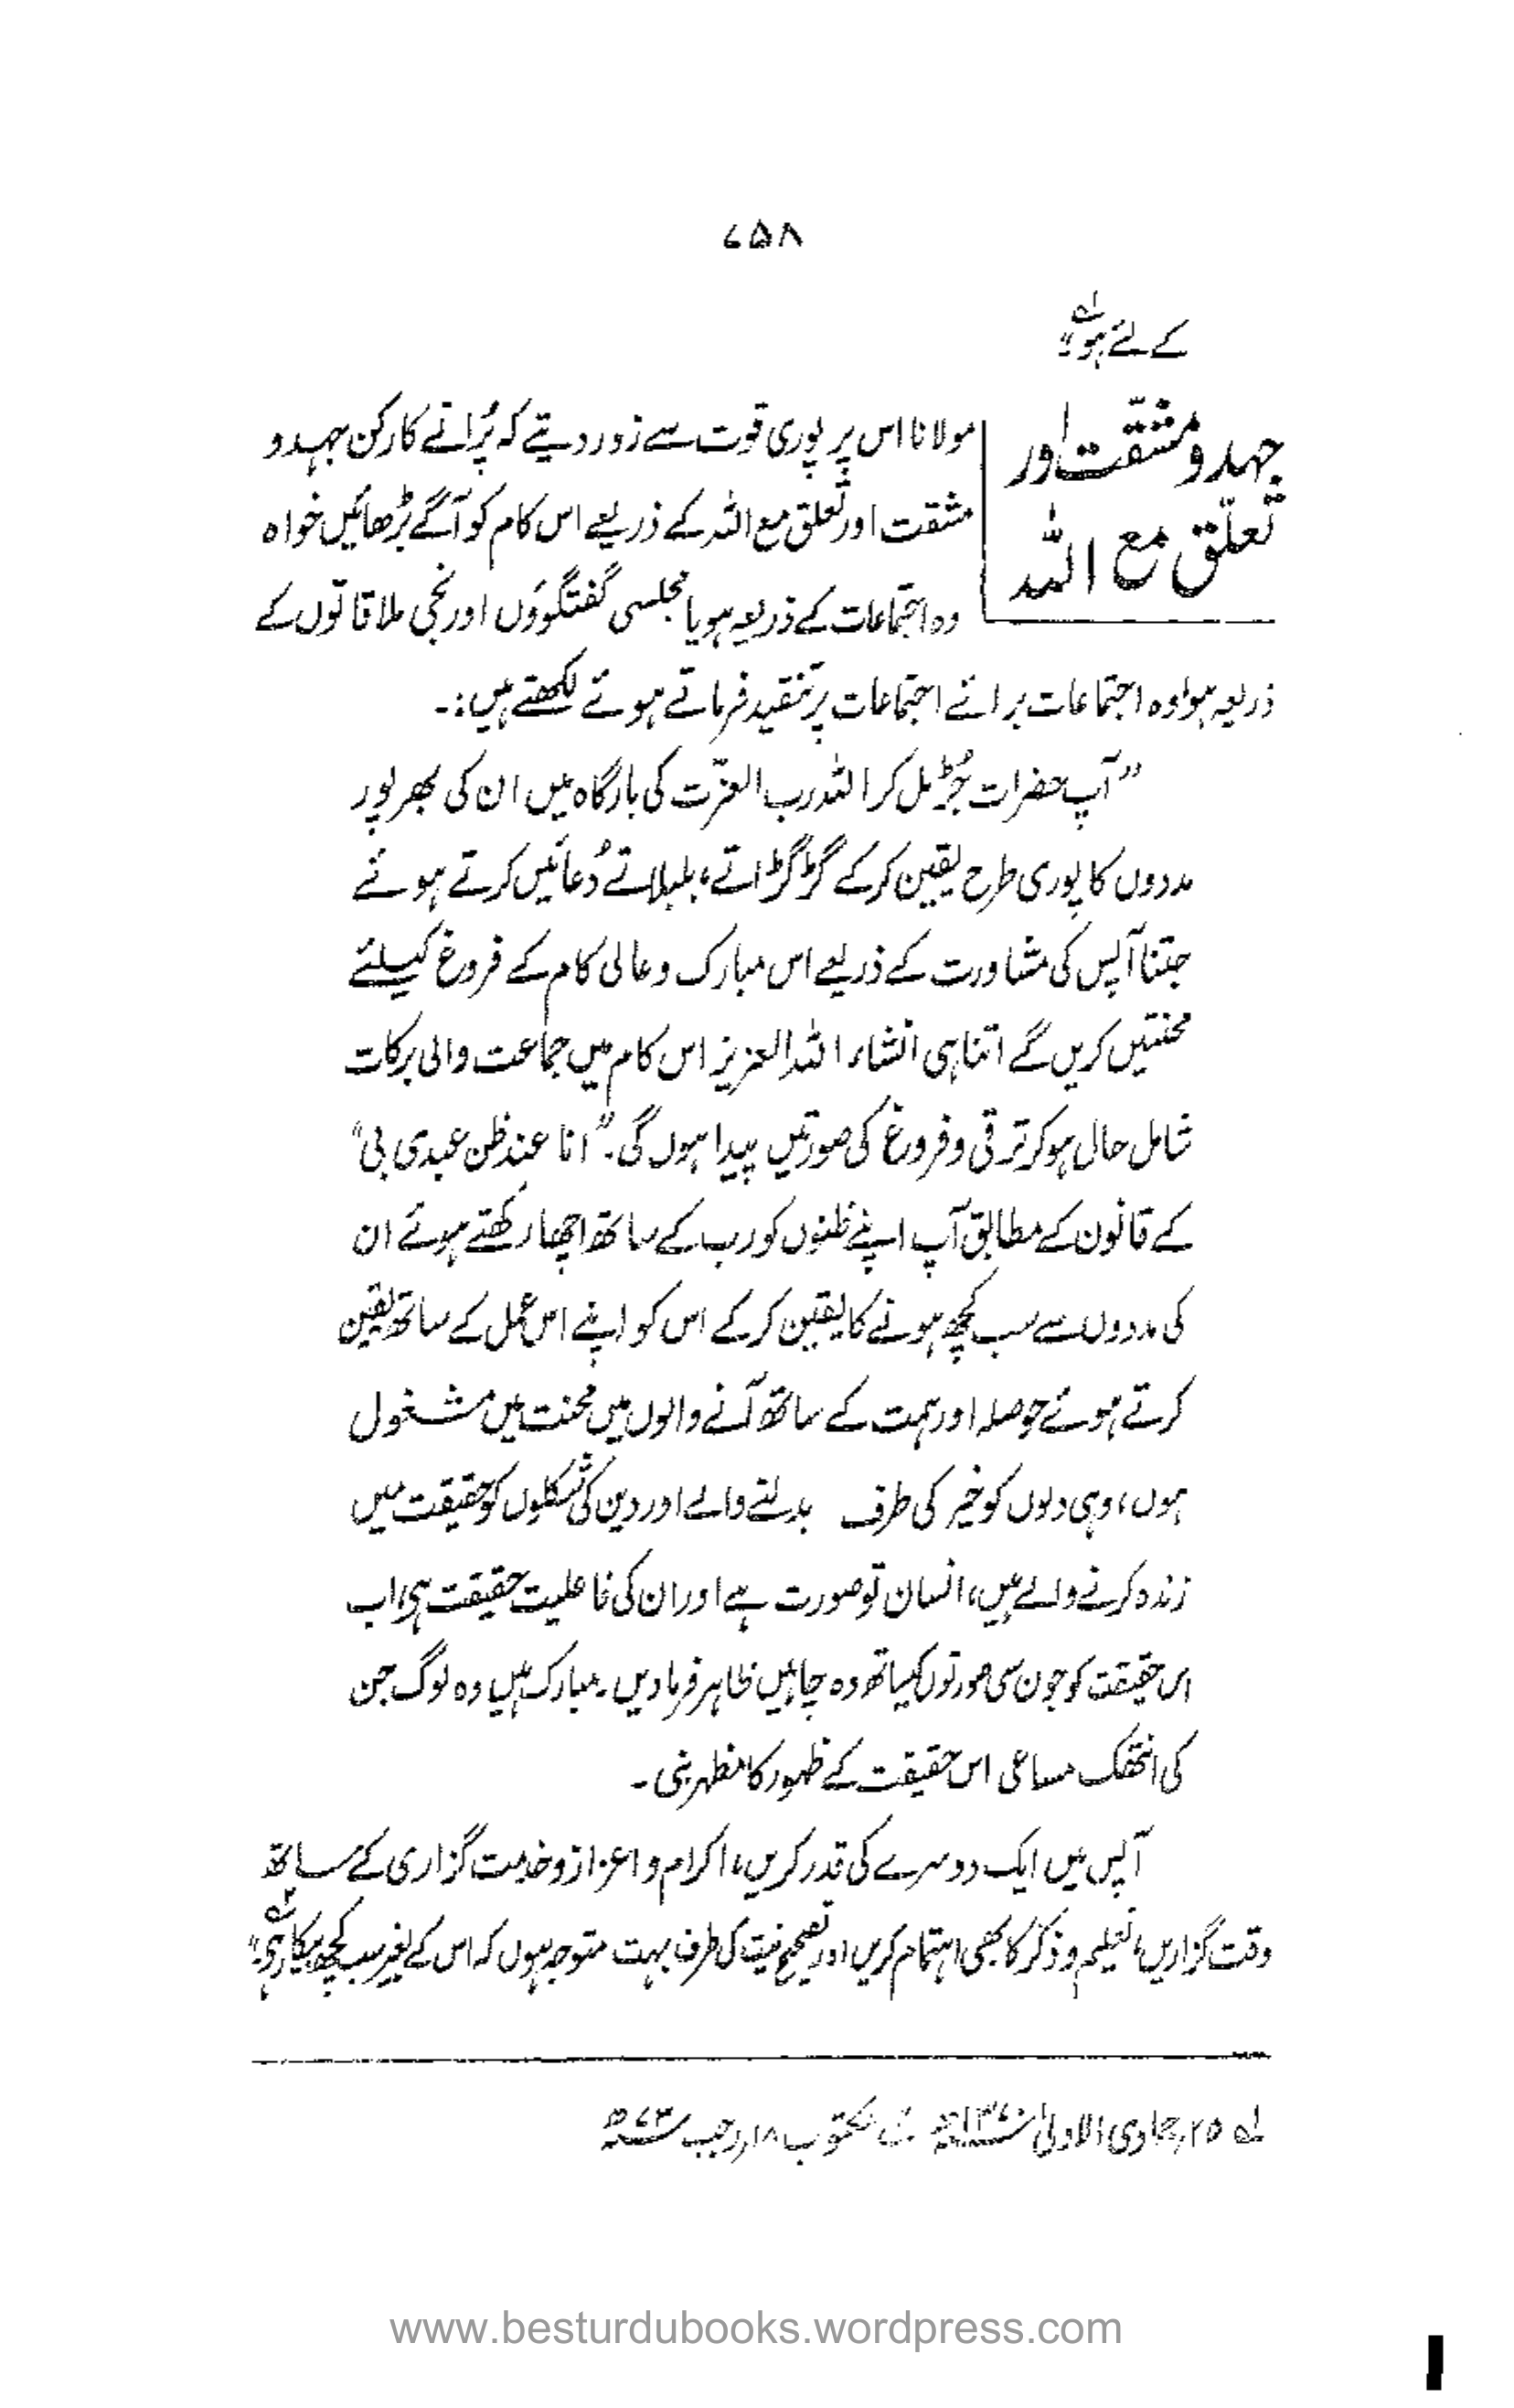 ۷۵۸
کے لئے ہو"؎۱
جہد و مشقت اور
تعلّق مع اللہ
مولانا اس پر پوری قوت سے زور دیتے کہ پُرانے کارکن جہد و
مشقت اور تعلق مع اللہ کے ذریعے اس کام کو آگے بڑھائیں خواہ
وہ اجتماعات کے ذریعہ ہو یا مجلسی گفتگوؤں اور نجی ملاقاتوں کے
ذریعہ ہو، وہ اجتماعات برائے اجتماعات پر تنقید فرماتے ہوئے لکھتے ہیں:۔
"آپ حضرات جُڑ مل کر اللہ رب العزّت کی بارگاہ میں ان کی بھرپور
مددوں کا پوری طرح یقین کر کے گڑگڑاتے، بلبلاتے دُعائیں کرتے ہوئے
جتنا آپس کی مشاورت کے ذریعے اس مبارک و عالی کام کے فروغ کیلئے
محنتیں کریں گے اتنا ہی انشاء اللہ العزیز اس کام میں جماعت والی برکات
شامل حال ہو کر ترقی و فروغ کی صورتیں پیدا ہوں گی۔ "انا عند ظن عبدی بی"
کے قانون کے مطابق آپ اپنے ظنوں کو رب کے ساتھ اچھا رکھتے ہوئے ان
کی مددوں سے سب کچھ ہونے کا یقین کر کے اس کو اپنے اس عمل کے ساتھ یقین
کرتے ہوئے حوصلہ اور ہمت کے ساتھ آنے والوں میں محنت میں مشغول
ہوں، وہی دلوں کو خیر کی طرف بدلنے والے اور دین کی شکلوں کو حقیقت میں
زندہ کرنے والے ہیں، انسان تو صورت ہے اور ان کی فاعلیت حقیقت ہی، اب
اس حقیقت کو جون سی صورتوں کیساتھ وہ چاہیں ظاہر فرما دیں۔ مبارک ہیں وہ لوگ جن
کی انتھک مساعی اس حقیقت کے ظہور کا مظہر بنی۔
آپس میں ایک دوسرے کی قدر کریں، اکرام و اعزاز و خدمت گزاری کے ساتھ
وقت گزاریں، تعلیم و ذکر کا بھی اہتمام کریں اور تصحیح نیت کی طرف بہت متوجہ ہوں کہ اس کے بغیر سب کچھ بیکار ہی"؎۲
؎۱ ۲۵ر جمادی الاولیٰ ۱۳۷۰ھ ؎۲ مکتوب ۱۸ر رجب ۷۳ھ
www.besturdubooks.wordpress.com